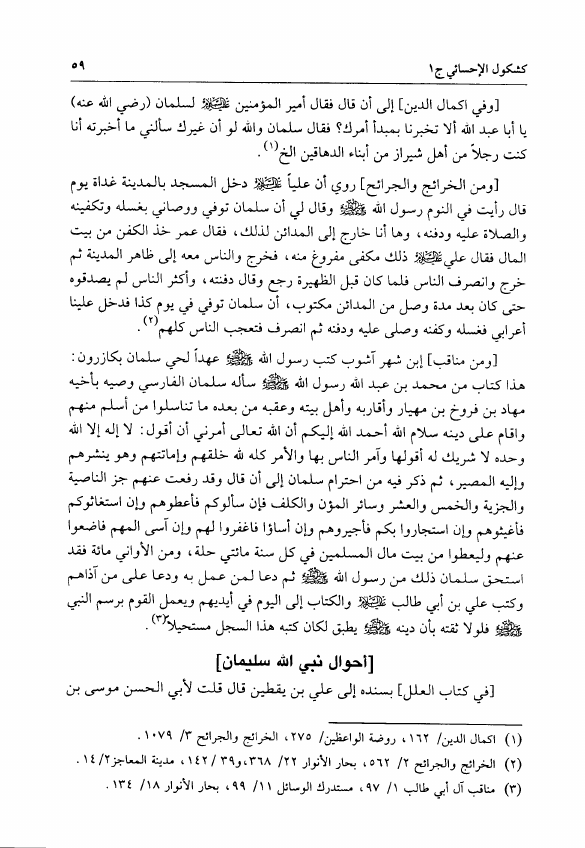 كشكول الإحسائي ج١
٥٩
[وفي اكمال الدين] إلى أن قال فقال أمير المؤمنين عليه السلام لسلمان (رضي الله عنه)
يا أبا عبد الله ألا تخبرنا بمبدأ أمرك؟ فقال سلمان والله لو أن غيرك سألني ما أخبرته أنا
كنت رجلاً من أهل شيراز من أبناء الدهاقين الخ(١).
[ومن الخرائج والجرائح] روي أن علياً عليه السلام دخل المسجد بالمدينة غداة يوم
قال رأيت في النوم رسول الله ﷺ وقال لي أن سلمان توفي ووصاني بغسله وتكفينه
والصلاة عليه ودفنه، وها أنا خارج إلى المدائن لذلك، فقال عمر خذ الكفن من بيت
المال فقال علي عليه السلام ذلك مكفى مفروغ منه، فخرج والناس معه إلى ظاهر المدينة ثم
خرج وانصرف الناس فلما كان قبل الظهيرة رجع وقال دفنته، وأكثر الناس لم يصدقوه
حتى كان بعد مدة وصل من المدائن مكتوب، أن سلمان توفي في يوم كذا فدخل علينا
أعرابي فغسله وكفنه وصلى عليه ودفنه ثم انصرف فتعجب الناس كلهم(٢).
[ومن مناقب] إبن شهر آشوب كتب رسول الله ﷺ عهداً لحي سلمان بكازرون:
هذا كتاب من محمد بن عبد الله رسول الله ﷺ سأله سلمان الفارسي وصيه بأخيه
مهاد بن فروخ بن مهيار وأقاربه وأهل بيته وعقبه من بعده ما تناسلوا من أسلم منهم
واقام على دينه سلام الله أحمد الله إليكم أن الله تعالى أمرني أن أقول: لا إله إلا الله
وحده لا شريك له أقولها وآمر الناس بها والأمر كله لله خلقهم وإماتتهم وهو ينشرهم
وإليه المصير، ثم ذكر فيه من احترام سلمان إلى أن قال وقد رفعت عنهم جز الناصية
والجزية والخمس والعشر وسائر المؤن والكلف فإن سألوكم فأعطوهم وإن استغاثوكم
فأغيثوهم وإن استجاروا بكم فأجيروهم وإن أساؤا فاغفروا لهم وإن آسى المهم فاضعوا
عنهم وليعطوا من بيت مال المسلمين في كل سنة مائتي حلة، ومن الأواني مائة فقد
استحق سلمان ذلك من رسول الله ﷺ ثم دعا لمن عمل به ودعا على من آذاهم
وكتب علي بن أبي طالب عليه السلام والكتاب إلى اليوم في أيديهم ويعمل القوم برسم النبي
ﷺ فلولا ثقته بأن دينه ﷺ يطبق لكان كتبه هذا السجل مستحيلاً(٣).
[أحوال نبي الله سليمان]
[في كتاب العلل] بسنده إلى علي بن يقطين قال قلت لأبي الحسن موسى بن
(١) اكمال الدين/ ١٦٢، روضة الواعظين/ ٢٧٥، الخرائج والجرائح ٣/ ١٠٧٩.
(٢) الخرائج والجرائح ٢/ ٥٦٢، بحار الأنوار ٢٢/ ٣٦٨، و٣٩/ ١٤٢، مدينة المعاجز٢/ ١٤.
(٣) مناقب آل أبي طالب ١/ ٩٧، مستدرك الوسائل ١١/ ٩٩، بحار الأنوار ١٨/ ١٣٤.